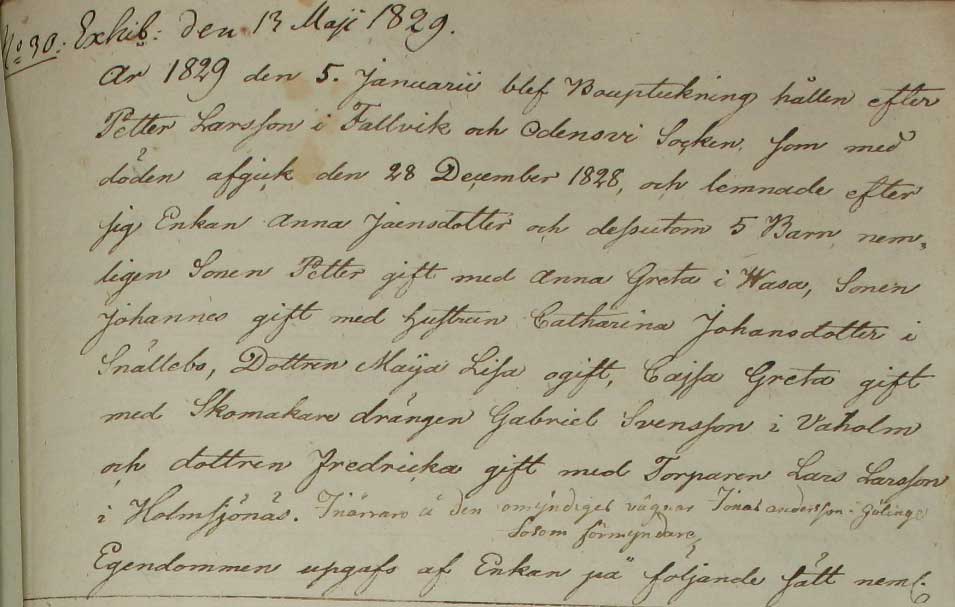 No 30. Exhib: den 13 Maji 1829.
År 1829 den 5. Januarii blef Bouptekning hållen efter
Petter Larsson i Fallvik och Odensvi Socken, som med
döden afgick den 28 December 1828, och lemnade efter
sig Enkan Anna Jaensdotter och dessutom 5 Barn nem„
ligen Sonen Petter gift med Anna Greta i Wasa, Sonen
Johannes gift med hustrun Catharina Johansdotter i
Snällebo, Dottren Maija Lisa ogift, Cajsa Greta gift
med Skomakare drängen Gabriel Svensson i Vaholm
och dottren Fredricka gift med Torparen Lars Larsson
i Holmsjönäs. å den omyndiges vägnar Jonas andersson i
Såsom förmyndare,
Egendommen upgafs af Enkan på följande sätt neml.